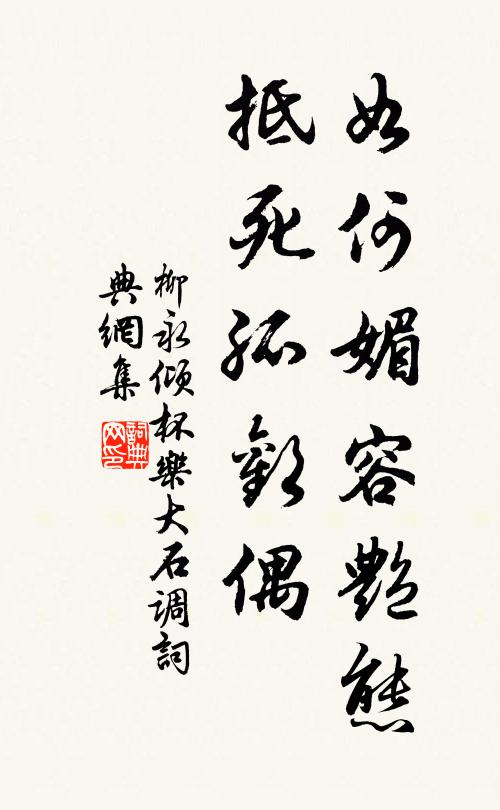 如何媚容艷態
抵死孤歡偶
柳永傾杯樂大石调詞
典網集
詞典
网印